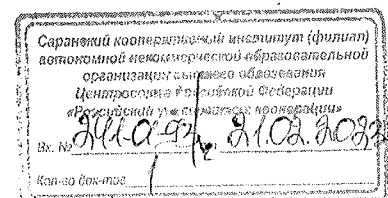 Саранский кооперативный институт (филиал)
автономной некоммерческой образовательной
организации высшего образования
Центросоюза Российской Федерации
«Российский университет кооперации»
Вх. № 21.02.2022
Кол-во док-тов 1